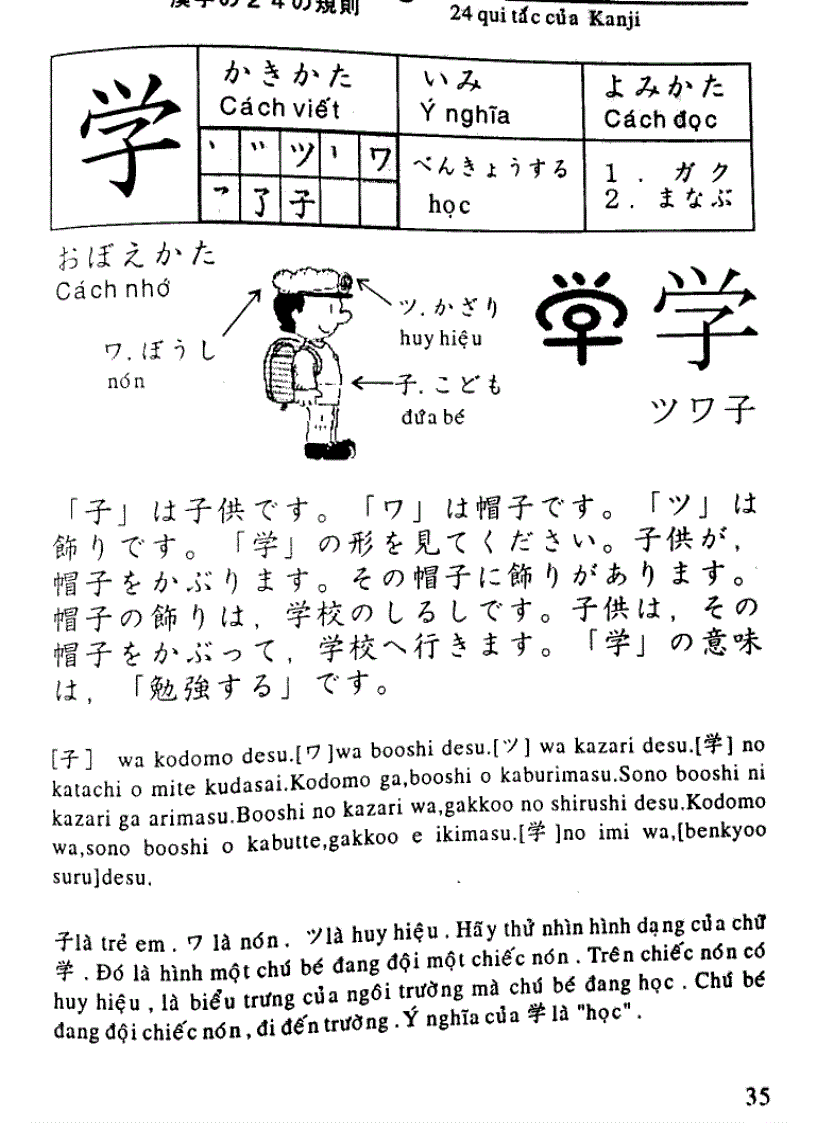 漢字の24の規則
24 qui tắc của Kanji
学
かきかた
Cách viết
いみ
Ý nghĩa
よみかた
Cách đọc
ツ ワ
了 子
べんきょうする
học
1. ガク
2. まなぶ
おぼえかた
Cách nhớ
ワ.ぼうし
nón
ツ.かざり
huy hiệu
子.こども
đứa bé
学
ツワ子
「子」は子供です。「ワ」は帽子です。「ツ」は
飾りです。「学」の形を見てください。子供が,
帽子をかぶります。その帽子に飾りがあります。
帽子の飾りは,学校のしるしです。子供は,その
帽子をかぶって,学校へ行きます。「学」の意味
は,「勉強する」です。
[子] wa kodomo desu.[ワ]wa booshi desu.[ツ] wa kazari desu.[学] no
katachi o mite kudasai.Kodomo ga,booshi o kaburimasu.Sono booshi ni
kazari ga arimasu.Booshi no kazari wa,gakkoo no shirushi desu.Kodomo
wa,sono booshi o kabutte,gakkoo e ikimasu.[学]no imi wa,[benkyoo
suru]desu.
子là trẻ em . ワ là nón . ツlà huy hiệu . Hãy thử nhìn hình dạng của chữ
学 . Đó là hình một chú bé đang đội một chiếc nón . Trên chiếc nón có
huy hiệu , là biểu trưng của ngôi trường mà chú bé đang học . Chú bé
đang đội chiếc nón , đi đến trường . Ý nghĩa của 学 là "học" .
35